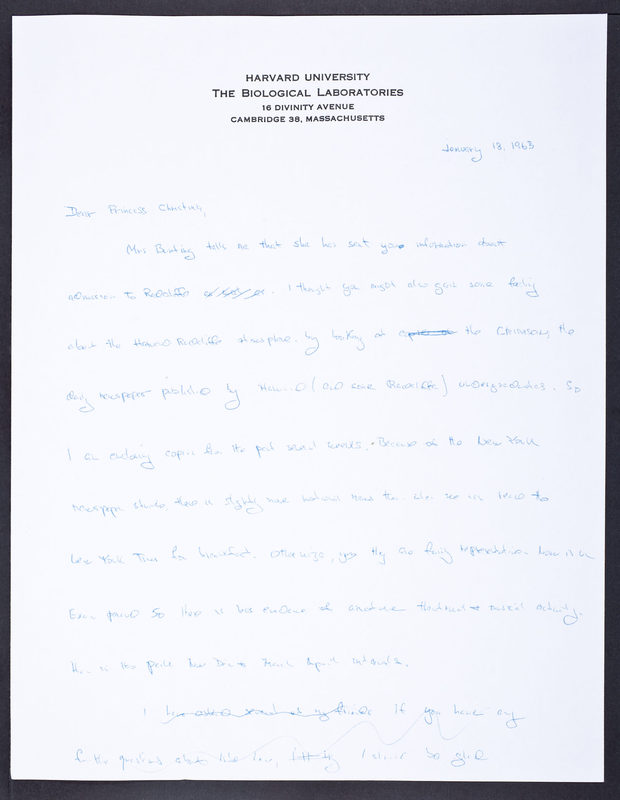 HARVARD UNIVERSITY
THE BIOLOGICAL LABORATORIES
16 DIVINITY AVENUE
CAMBRIDGE 38, MASSACHUSETTS
January 18, 1963
Dear Princess Christina,
Mrs Bunting tells me that she has sent you information about
admission to Radcliffe. I thought you might also gain some feeling
about the Harvard Radcliffe atmosphere by looking at the Crimson, the
daily newspaper published by Harvard (and some Radcliffe) undergraduates. So
I am enclosing copies from the past several weeks. Because of the New York
newspaper strike, there is slightly more national news than when we can read the
New York Times for breakfast. Otherwise, they are fairly representative. Now is an
Exam period so there is less evidence of amateur theatrical + musical activity
than in the
I If you have any
further questions I should be glad